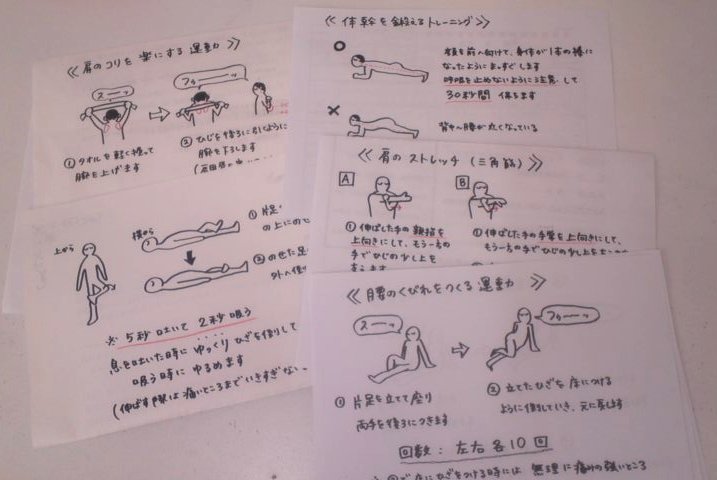 ≪ 肩のコリを 楽にする 運動 ≫
スーッ
フゥーーッ
① タオルを軽く持って
腕を上げます
② ひじを後ろに引くように
腕を下ろします
≪ 体幹を鍛えるトレーニング ≫
○
顔を前へ向けて、身体が1本の棒に
なったようにまっすぐします
呼吸を止めないように注意して
30秒間 保ちます
×
背中〜腰が丸くなっている
≪ 肩の ストレッチ (三角筋) ≫
A
① 伸ばした手の 親指を
上向きにして、もう一方の
手でひじの少し上を
B
① 伸ばした手の手掌を上向きにして、
もう一方の手でひじの少し上を
上から
横から
① 片足
の上にのせ
② のせた足
外へ倒
※ 5秒吐いて 2秒吸う
息を吐いた時に ゆっくり ひざを倒して
吸う時に ゆるめます
(伸ばす際は痛いところまでいきすぎない
≪ 腰のくびれをつくる 運動 ≫
スーッ
フゥーーッ
① 片足を立てて座り
両手を後ろにつきます
② 立てたひざを 床につける
ように倒していき、元に戻します
回数 : 左右 各10回
床にひざをつける時には 無理に痛みの強いところ